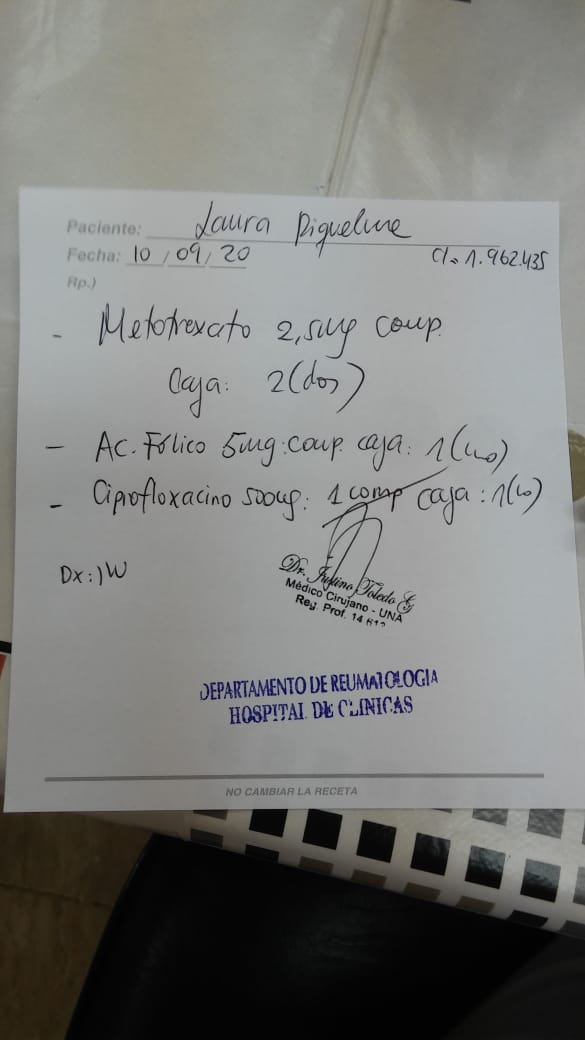 Paciente: Laura Riquelme
Fecha: 10 / 09 / 20 CI. 1.962.435
Rp.)
- Metotrexato 2,5mg comp.
Caja: 2 (dos)
- Ac. Fólico 5mg: comp. caja: 1 (uno)
- Ciprofloxacino 500mg: 1 comp caja: 1 (uno)
Dx:
Dr. Toledo G
Médico Cirujano - UNA
Reg. Prof. 14
DEPARTAMENTO DE REUMATOLOGIA
HOSPITAL DE CLINICAS
NO CAMBIAR LA RECETA